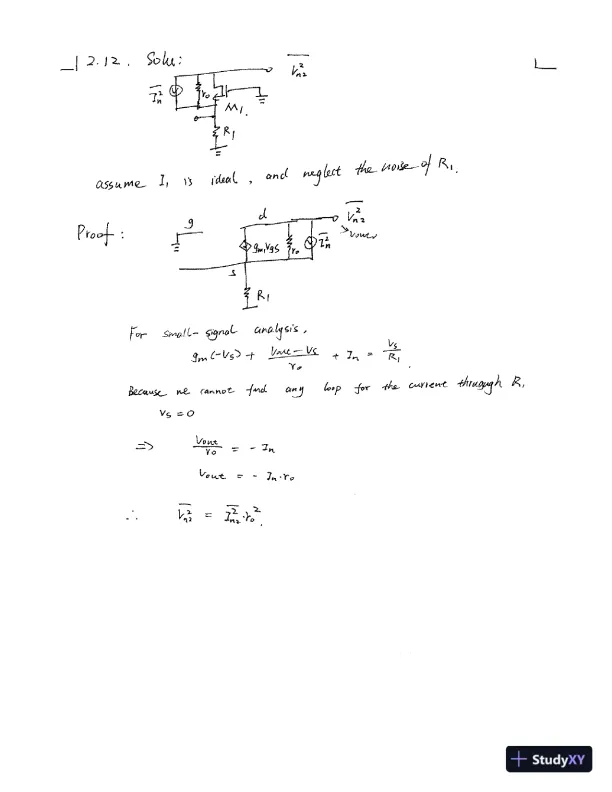 2.12. Solu:
$\overline{V_{n2}^2}$
$\overline{I_n^2}$ r₀
M1.
R₁
assume I₁ is ideal, and neglect the noise of R₁.
Proof:
g d $\overline{V_{n2}^2}$
Vout
gm₁Vgs r₀ $\overline{I_n^2}$
s
R₁
For small-signal analysis,
gm(-Vs) + (Vout - Vs)/r₀ + In = Vs/R₁.
Because we cannot find any loop for the current through R₁
Vs = 0
⇒ Vout/r₀ = - In
Vout = - In·r₀
∴ $\overline{V_{n2}^2}$ = $\overline{I_{n2}^2}$·r₀².
StudyXY